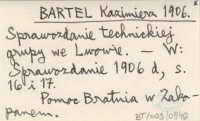 BARTEL Kazimierz 1906.
Sprawozdanie technickiej
grupy we Lwowie. — W:
Sprawozdanie 1906 d, s.
16 i 17.
Pomoc Bratnia w Zako-
panem.
BT/003/0946